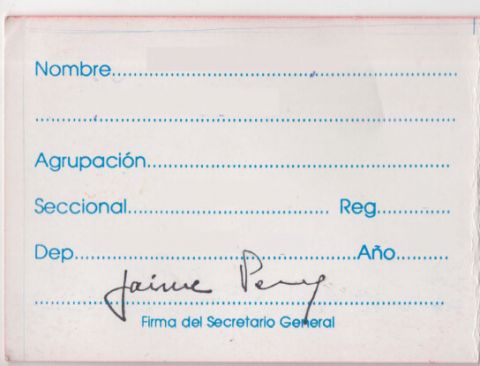 Nombre..........................................................
..........................................................................
Agrupación....................................................
Seccional.................................. Reg.............
Dep...............................................Año..........
Jaime Perez
Firma del Secretario General